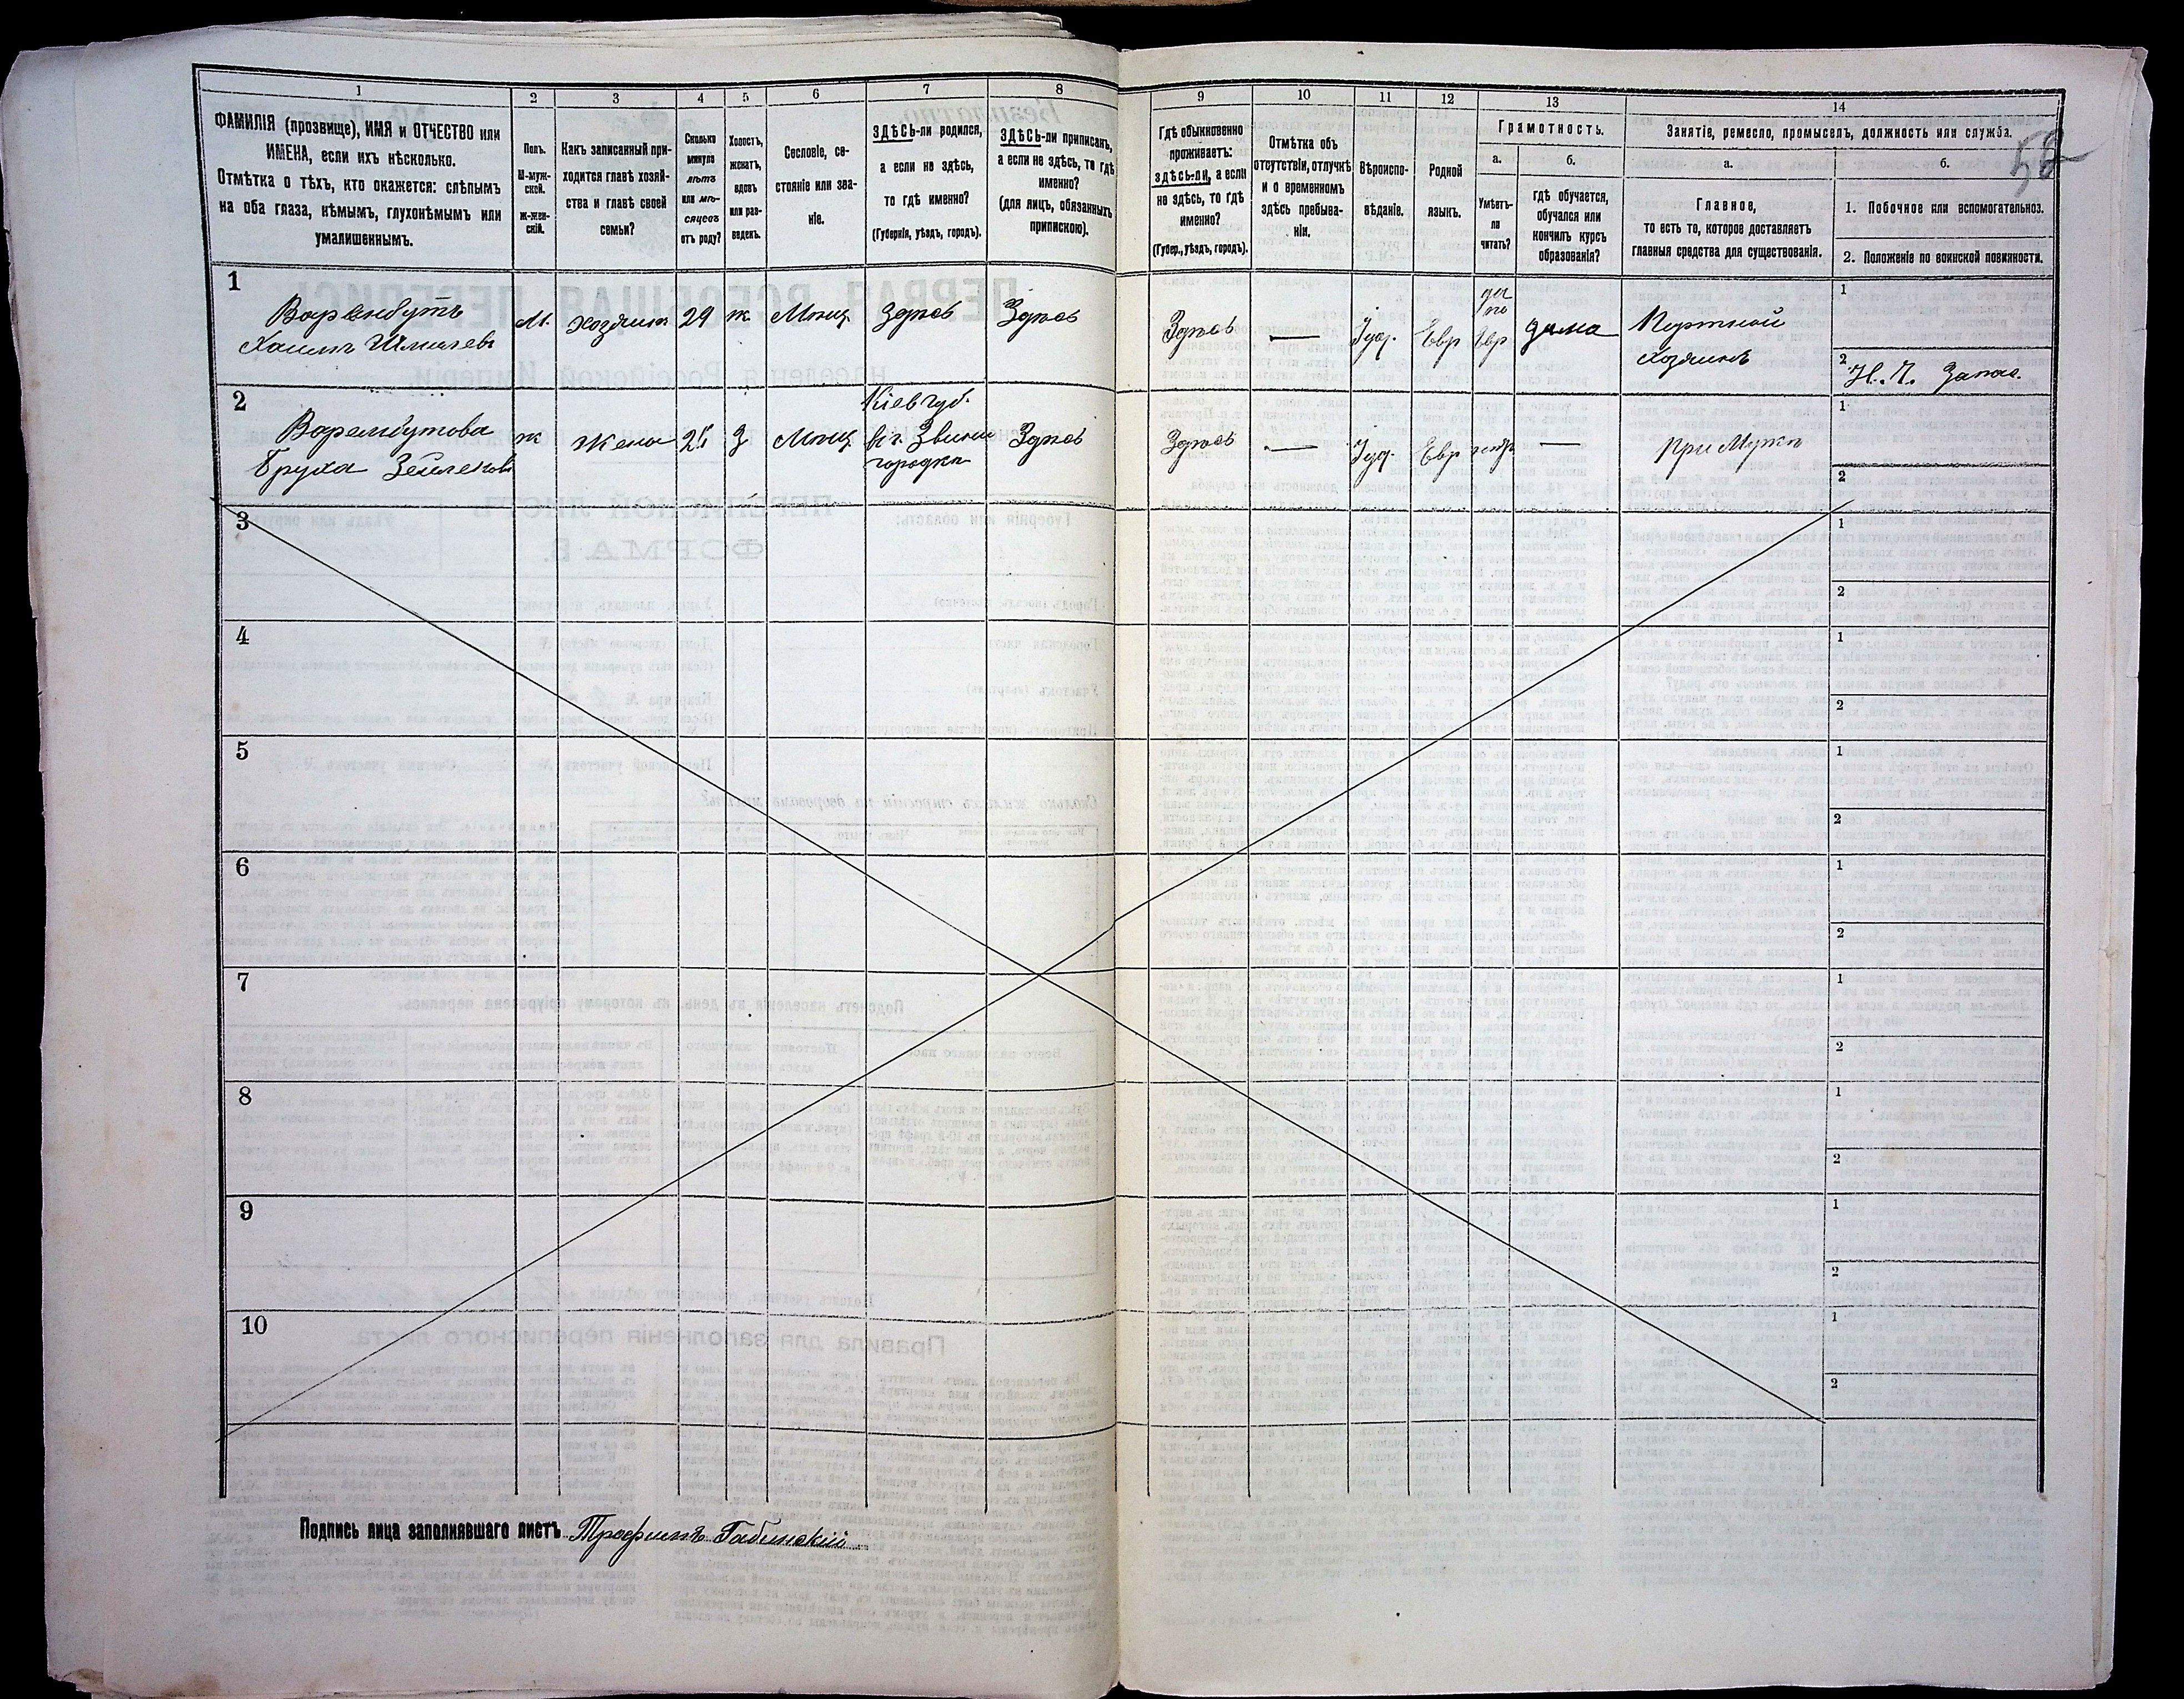 1 2 3 4 5 6 7 8 9 10 11 12 13 14
ФАМИЛІЯ (прозвище), ИМЯ и ОТЧЕСТВО или
ИМЕНА, если ихъ нѣсколько.
Отмѣтка о тѣхъ, кто окажется: слѣпымъ
на оба глаза, нѣмымъ, глухонѣмымъ или
умалишеннымъ.
Полъ.
М-муж-
ской.
Ж-жен-
скій.
Какъ записанный при-
ходится главѣ хозяй-
ства и главѣ своей
семьи?
Сколько
минуло
лѣтъ
или мѣ-
сяцевъ
отъ роду?
Холостъ,
женатъ,
вдовъ
или раз-
веденъ.
Сословіе, со-
стояніе или зва-
ніе.
ЗДѢСЬ-ли родился,
а если не здѣсь,
то гдѣ именно?
(Губернія, уѣздъ, городъ).
ЗДѢСЬ-ли приписанъ,
а если не здѣсь, то гдѣ
именно?
(для лицъ, обязанныхъ
припискою).
Гдѣ обыкновенно
проживаетъ:
здѣсь-ли, а если
не здѣсь, то гдѣ
именно?
(Губер., уѣздъ, городъ).
Отмѣтка объ
отсутствіи, отлучкѣ
и о временномъ
здѣсь пребыва-
ніи.
Вѣроиспо-
вѣданіе.
Родной
языкъ.
Грамотность.
а.
Умѣетъ-
ли
читать?
б.
гдѣ обучается,
обучался или
кончилъ курсъ
образованія?
Занятіе, ремесло, промыселъ, должность или служба.
а.
Главное,
то есть то, которое доставляетъ
главныя средства для существованія.
б.
1. Побочное или вспомогательное.
2. Положеніе по воинской повинности.
58
1
Хаимъ
м. хозяинъ 29 ж. Мѣщ. Здѣсь Здѣсь Здѣсь — Іуд. Евр да по Евр дома Портной
хозяинъ
1
2 Запас.
2
Бруха
ж жена З Мѣщ Кіев губ.
в г. Звени
городкѣ
Здѣсь Здѣсь — Іуд. Евр — При Мужѣ
1
2
3 1
2
4 1
2
5 1
2
6 1
2
7 1
2
8 1
2
9 1
2
10 1
2
Подпись лица заполнявшаго листъ Трофимъ Габинскій